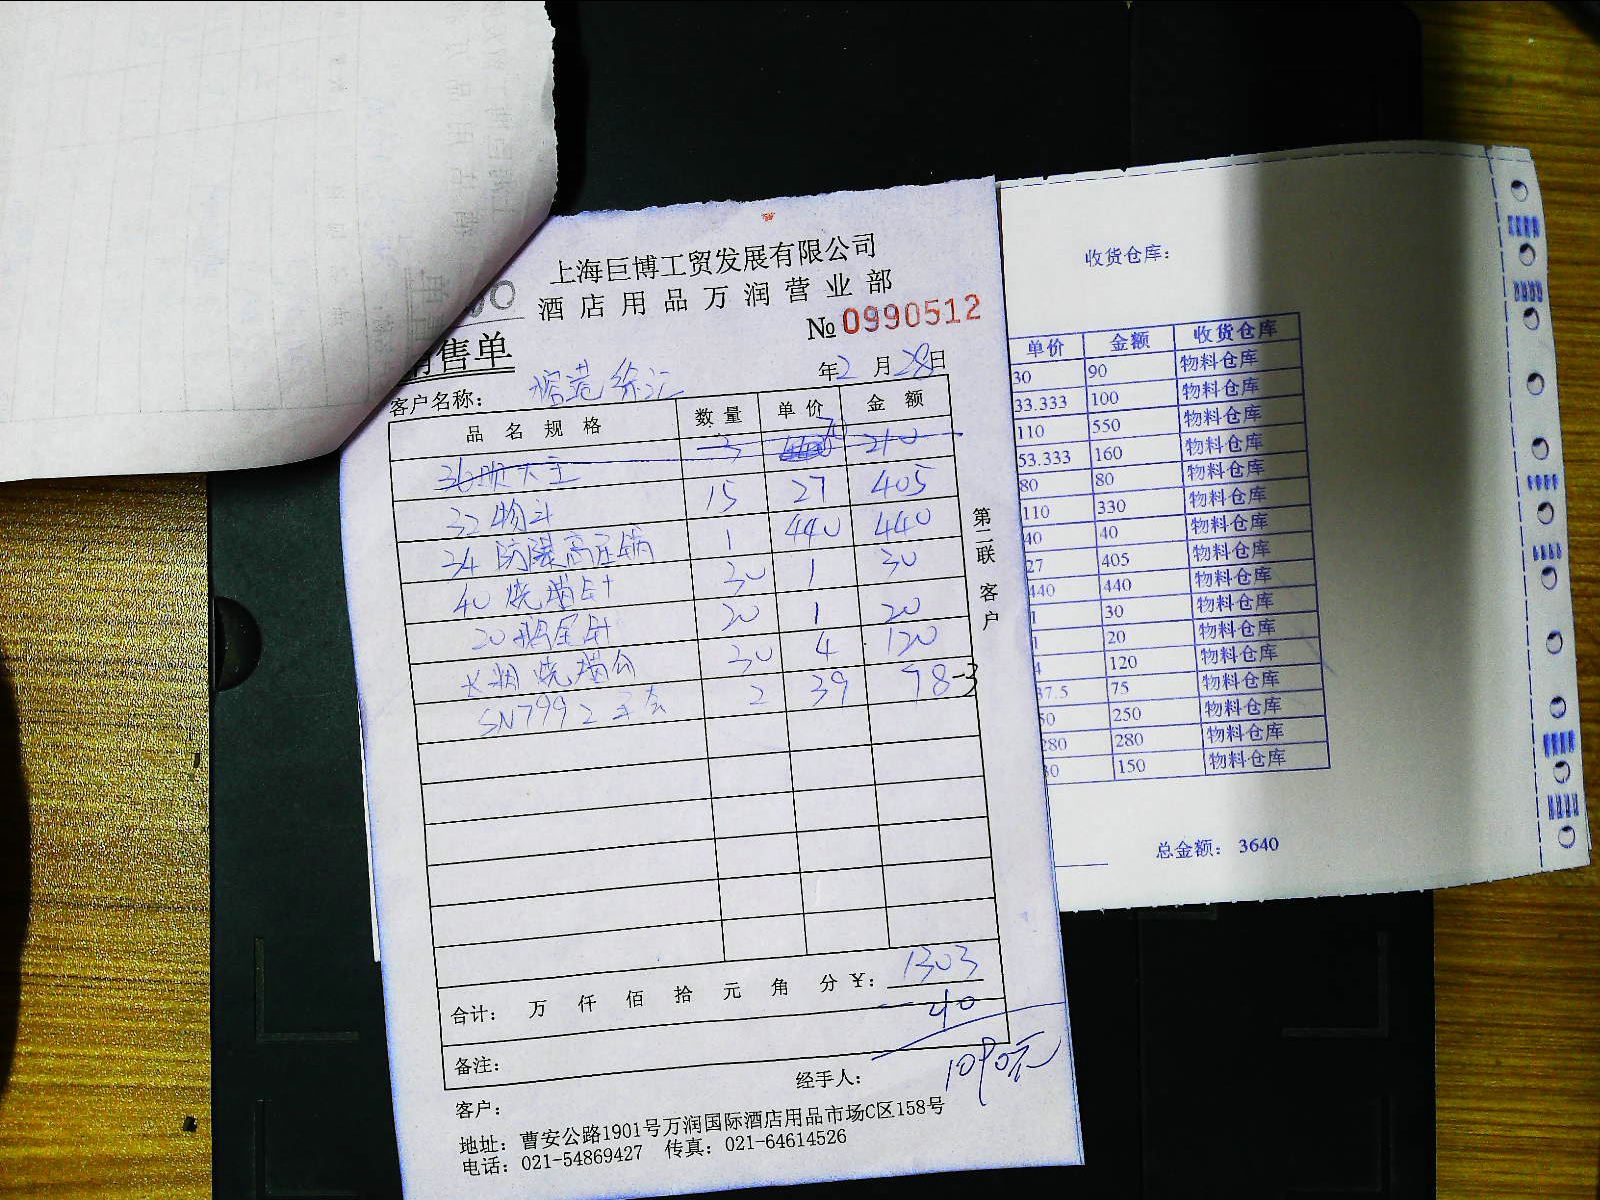 上海巨博工贸发展有限公司
酒店用品万润营业部
№ 0990512
销售单
客户名称：
年2月28日
品名规格 数量 单价 金额
3 210
32 物斗 15 27 405
34 防爆高压锅 1 440 440
40 烧烤针 30 1 30
20 1 20
30 4 120
SN7992 2 39 78-3
第二联 客户
合计： 万 仟 佰 拾 元 角 分 ¥： 1303
210
1090元
备注：
经手人：
客户：
地址：曹安公路1901号万润国际酒店用品市场C区158号
电话：021-54869427 传真：021-64614526
收货仓库：
单价 金额 收货仓库
30 90 物料仓库
33.333 100 物料仓库
110 550 物料仓库
53.333 160 物料仓库
80 80 物料仓库
110 330 物料仓库
40 40 物料仓库
27 405 物料仓库
440 440 物料仓库
1 30 物料仓库
1 20 物料仓库
4 120 物料仓库
37.5 75 物料仓库
50 250 物料仓库
280 280 物料仓库
150 物料仓库
总金额： 3640